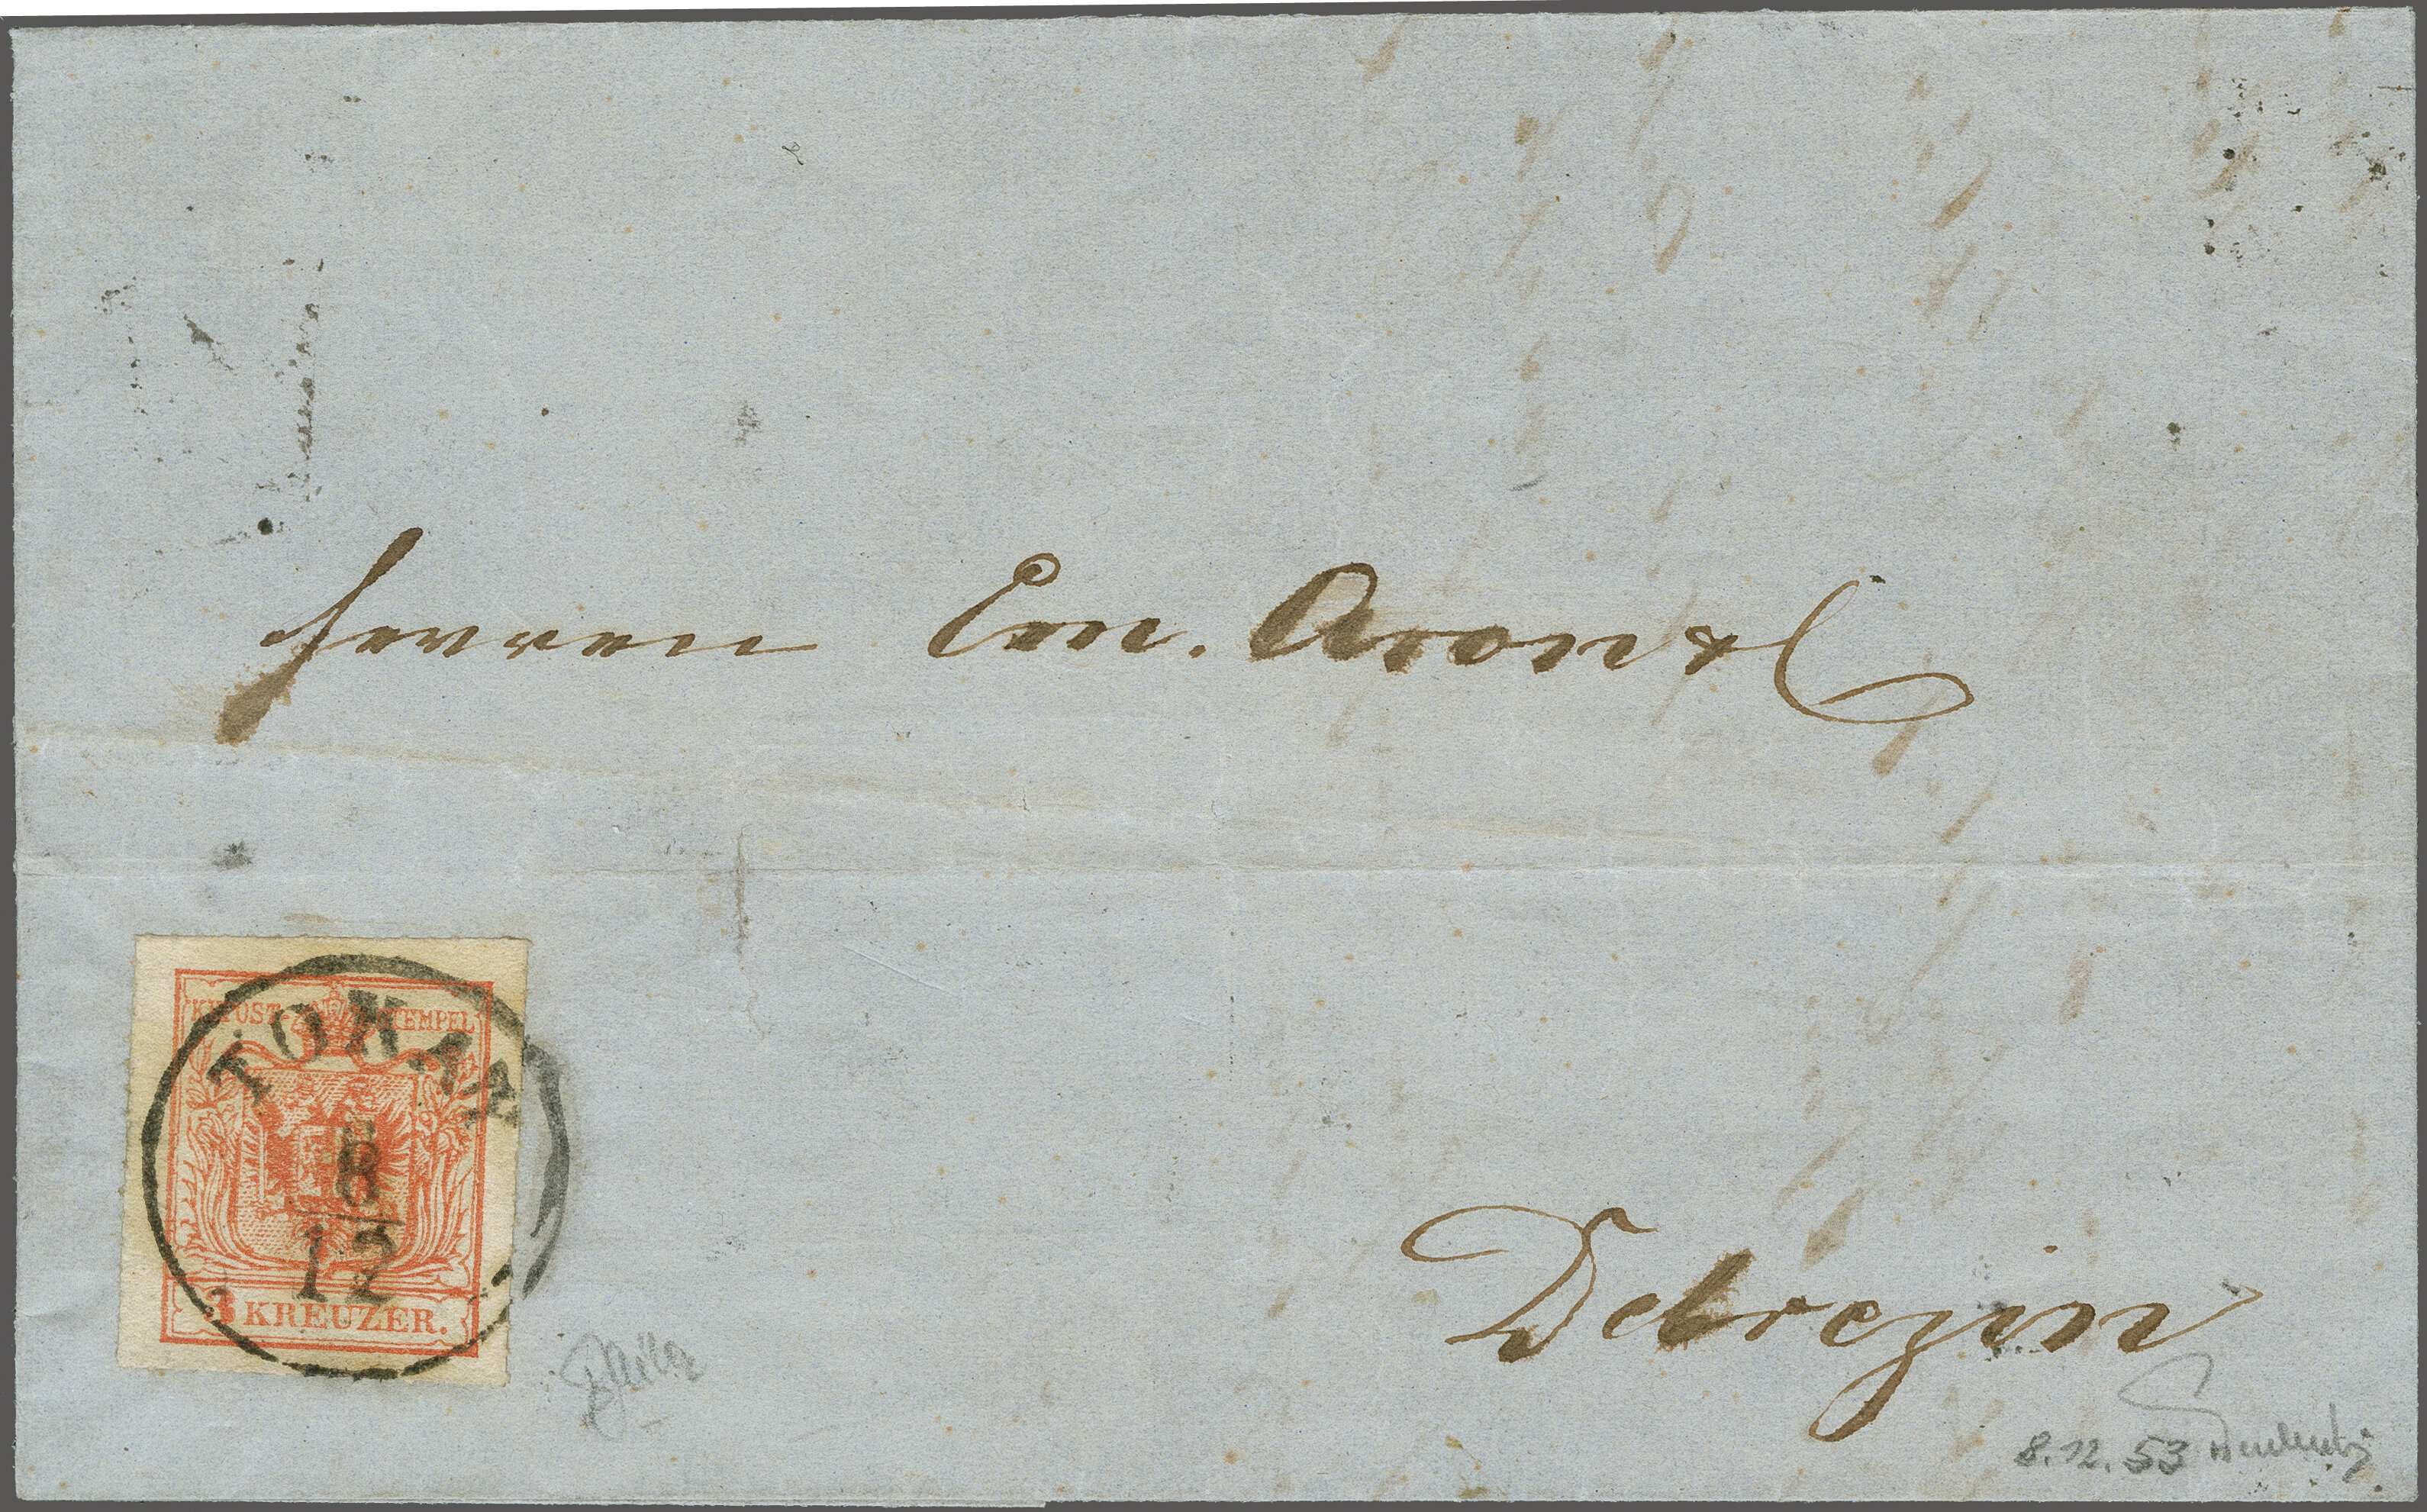 Herren Em. Aron &
Debrezin
KK POST-STEMPEL
TOKAY
8
12
3 KREUZER.
8.12.53